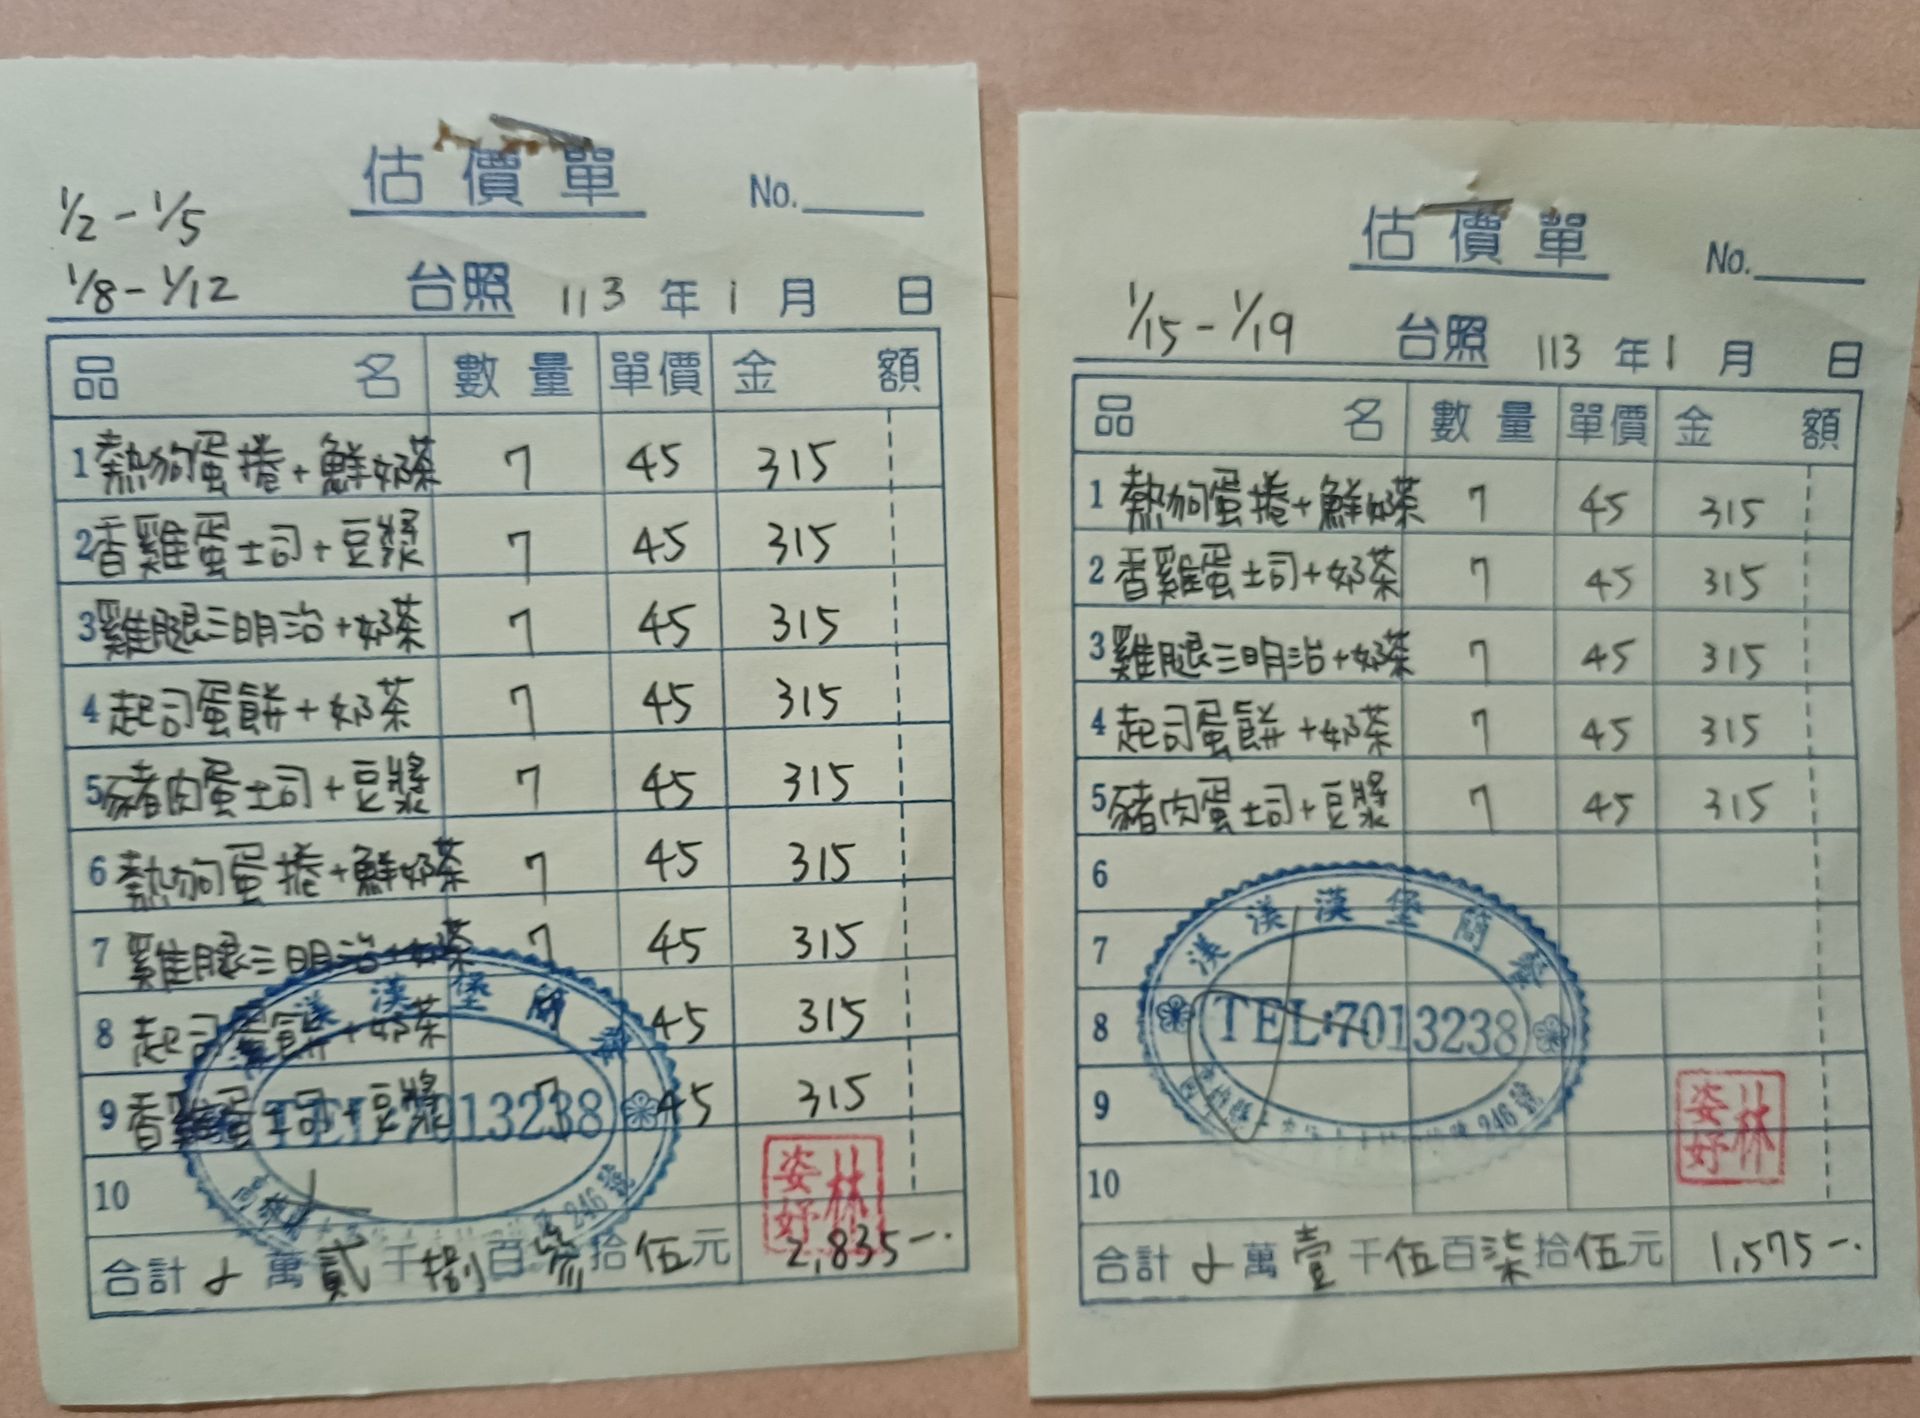 估價單
No.
1/2-1/5
1/8-1/12 台照 113年1月 日
品名 數量 單價 金額
1 熱狗蛋捲+鮮奶茶 7 45 315
2 香雞蛋土司+豆漿 7 45 315
3 雞腿三明治+奶茶 7 45 315
4 起司蛋餅+奶茶 7 45 315
5 豬肉蛋土司+豆漿 7 45 315
6 熱狗蛋捲+鮮奶茶 7 45 315
7 雞腿三明治+奶茶 7 45 315
8 起司蛋餅+奶茶 45 315
9 香雞蛋土司+豆漿 7 45 315
10
漢堡簡餐
TEL:7013238
246號
林姿妤
合計 萬貳千捌百參拾伍元 2,835-
估價單
No.
1/15-1/19 台照 113年1月 日
品名 數量 單價 金額
1 熱狗蛋捲+鮮奶茶 7 45 315
2 香雞蛋土司+奶茶 7 45 315
3 雞腿三明治+奶茶 7 45 315
4 起司蛋餅+奶茶 7 45 315
5 豬肉蛋土司+豆漿 7 45 315
6
7
8
9
10
漢漢堡簡餐
TEL:7013238
246號
林姿妤
合計 萬壹千伍百柒拾伍元 1,575-